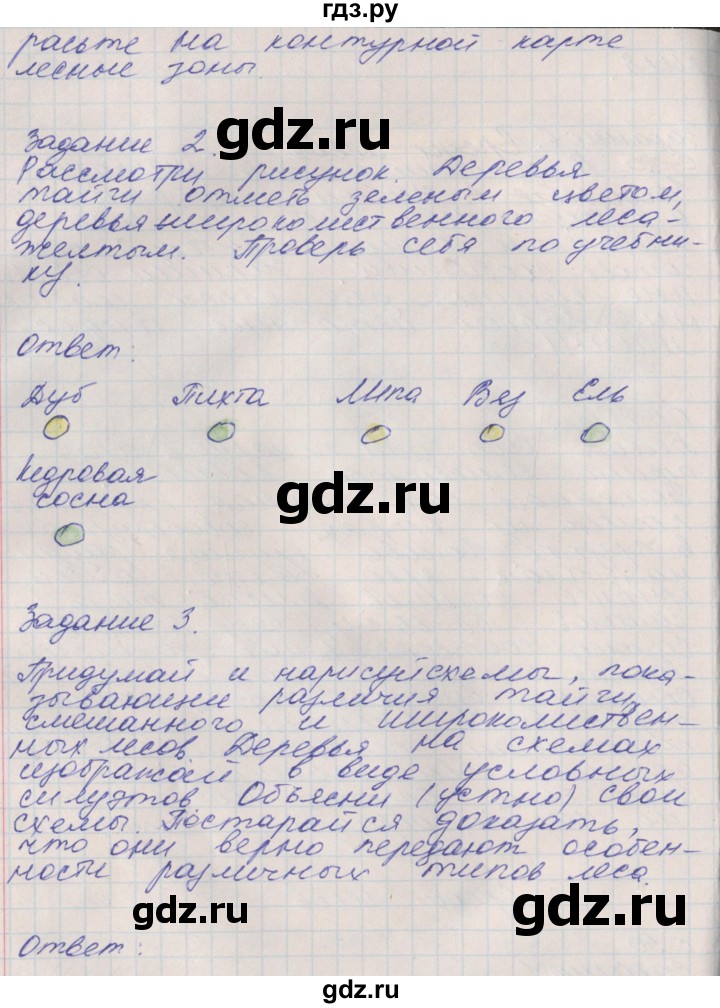 гдз.ру
расьте на контурной карте
лесные зоны.
gdz.ru
Задание 2.
Рассмотри рисунок. Деревья
тайги отметь зеленым цветом,
деревья широколиственного леса-
желтым. Проверь себя по учебни-
ку.
Ответ:
Дуб Пихта Липа Вяз Ель
gdz.ru
Кедровая
сосна
Задание 3.
Придумай и нарисуй схемы, пока-
зывающие различия тайги,
gdz.ru
смешанного и широколиствен-
ных лесов. Деревья на схемах
изображай в виде условных
силуэтов Объясни (устно) свои
схемы. Постарайся доказать,
что они верно передают особен-
ности различных типов леса.
gdz.ru gdz.ru
Ответ:
gdz.ru